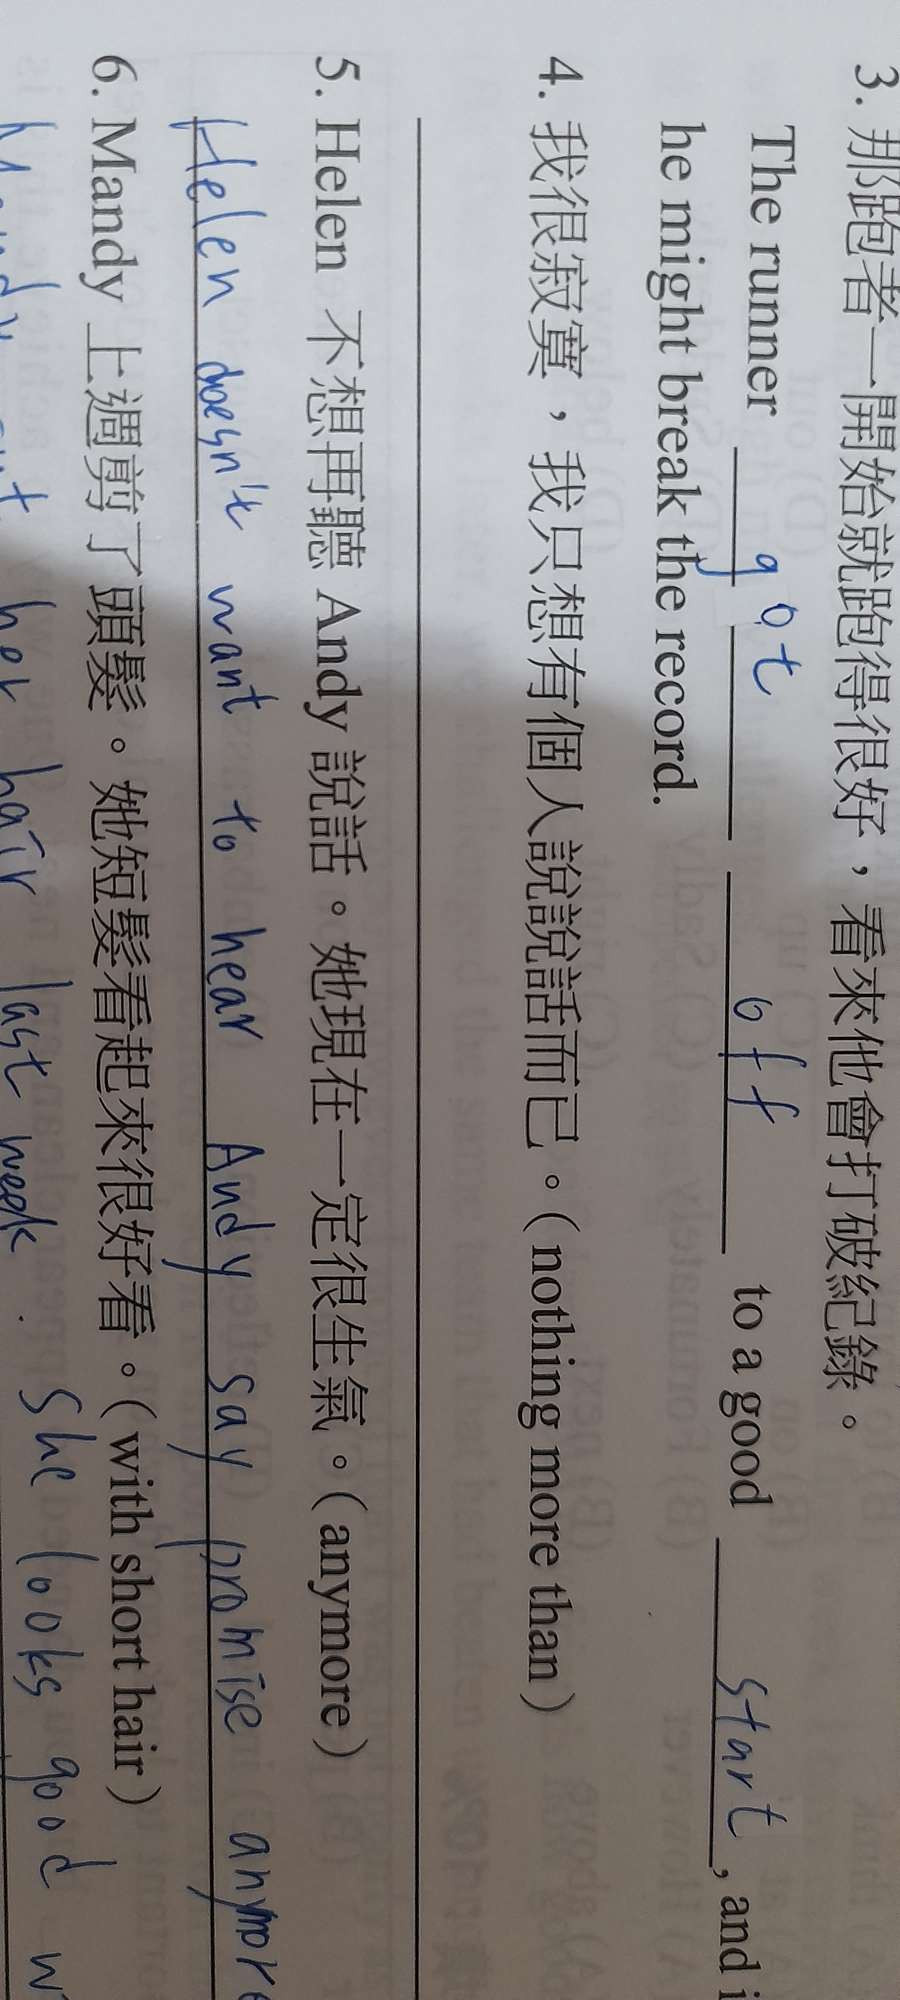 3. 那跑者一開始就跑得很好，看來他會打破紀錄。
The runner got off to a good start, and i
he might break the record.
4. 我很寂寞，我只想有個人說說話而已。(nothing more than)
5. Helen 不想再聽 Andy 說話。她現在一定很生氣。(anymore)
Helen doesn't want to hear Andy say promise anymore
6. Mandy 上週剪了頭髮。她短髮看起來很好看。(with short hair)
Mandy cut her hair last week. She looks good w